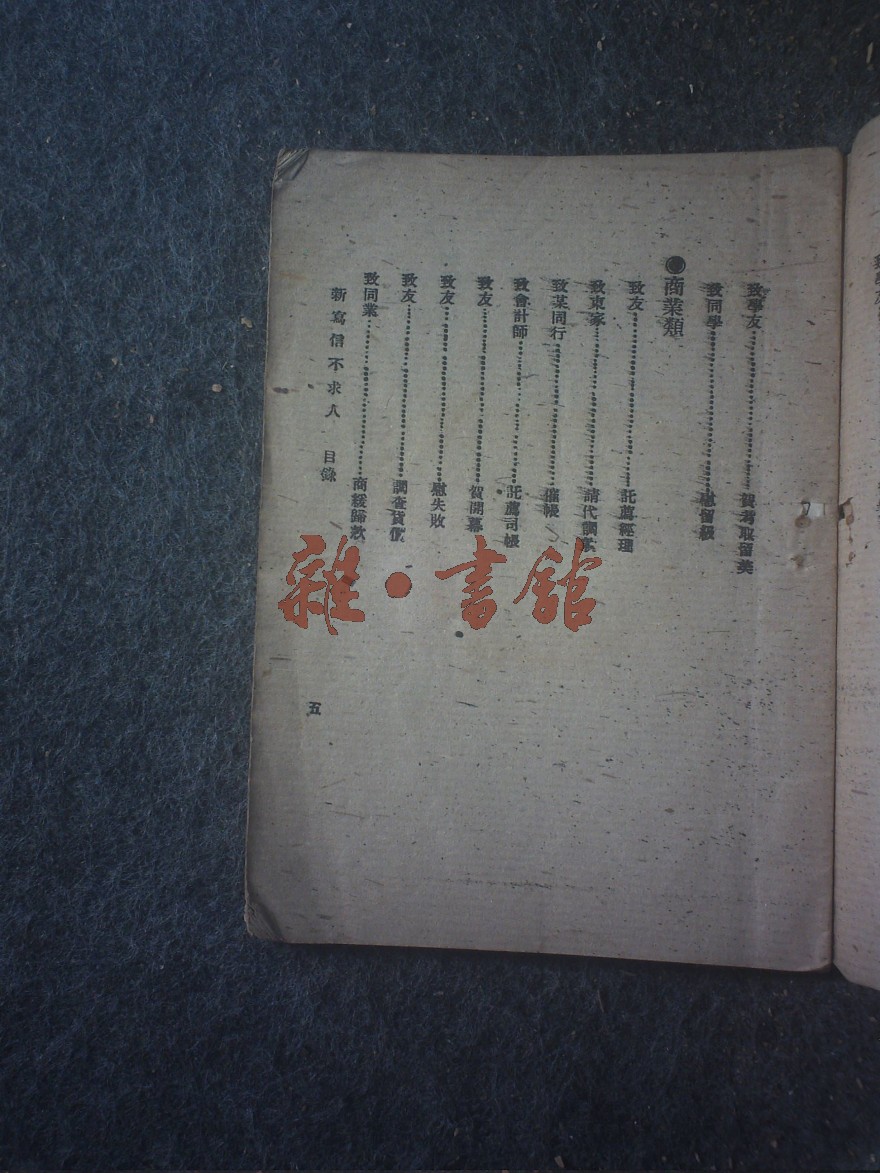 致學友……………賀考取留美
致同學……………慰留級
●商業類
致友……………託薦經理
致東家……………請代調款
致某同行……………催帳
致會計師……………託薦司帳
致友……………賀開幕
致友……………慰失敗
致友……………調查貨價
致同業……………商緩歸款
新寫信不求人 目錄
五
雜·書館